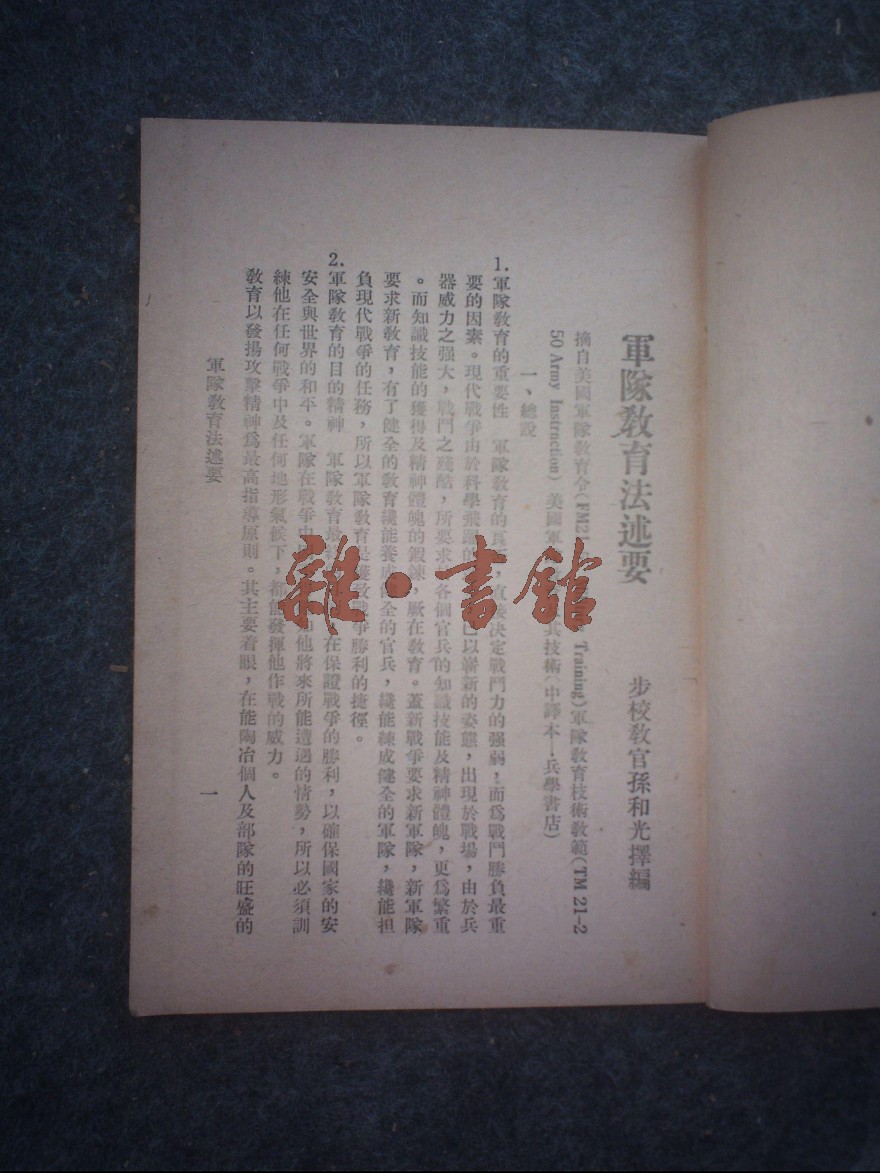 軍隊教育法述要
步校教官孫和光擇編
摘自美國軍隊教育令(FM21 Training)軍隊教育技術教範(TM 21-2
50 Army Instruction) 美國軍 兵技術(中譯本—兵學書店)
一、總說
1.軍隊教育的重要性 軍隊教育的 ,直 決定戰鬥力的强弱,而爲戰鬥勝負最重
要的因素。現代戰爭由於科學飛躍的 已以嶄新的姿態,出現於戰場,由於兵
器威力之强大,戰鬥之殘酷,所要求 各個官兵的知識技能及精神體魄,更爲繁重
。而知識技能的獲得及精神體魄的鍛鍊,厥在教育。蓋新戰爭要求新軍隊,新軍隊
要求新教育,有了健全的教育纔能養成健全的官兵,纔能練成健全的軍隊,纔能担
負現代戰爭的任務,所以軍隊教育是獲致戰爭勝利的捷徑。
2.軍隊教育的目的精神 軍隊教育最 在保證戰爭的勝利,以確保國家的安
安全與世界的和平。軍隊在戰爭中 他將來所能遭遇的情勢,所以必須訓
練他在任何戰爭中及任何地形氣候下,都能發揮他作戰的威力。
教育以發揚攻擊精神爲最高指導原則。其主要着眼,在能陶冶個人及部隊的旺盛的
軍隊教育法述要
一
雜·書館